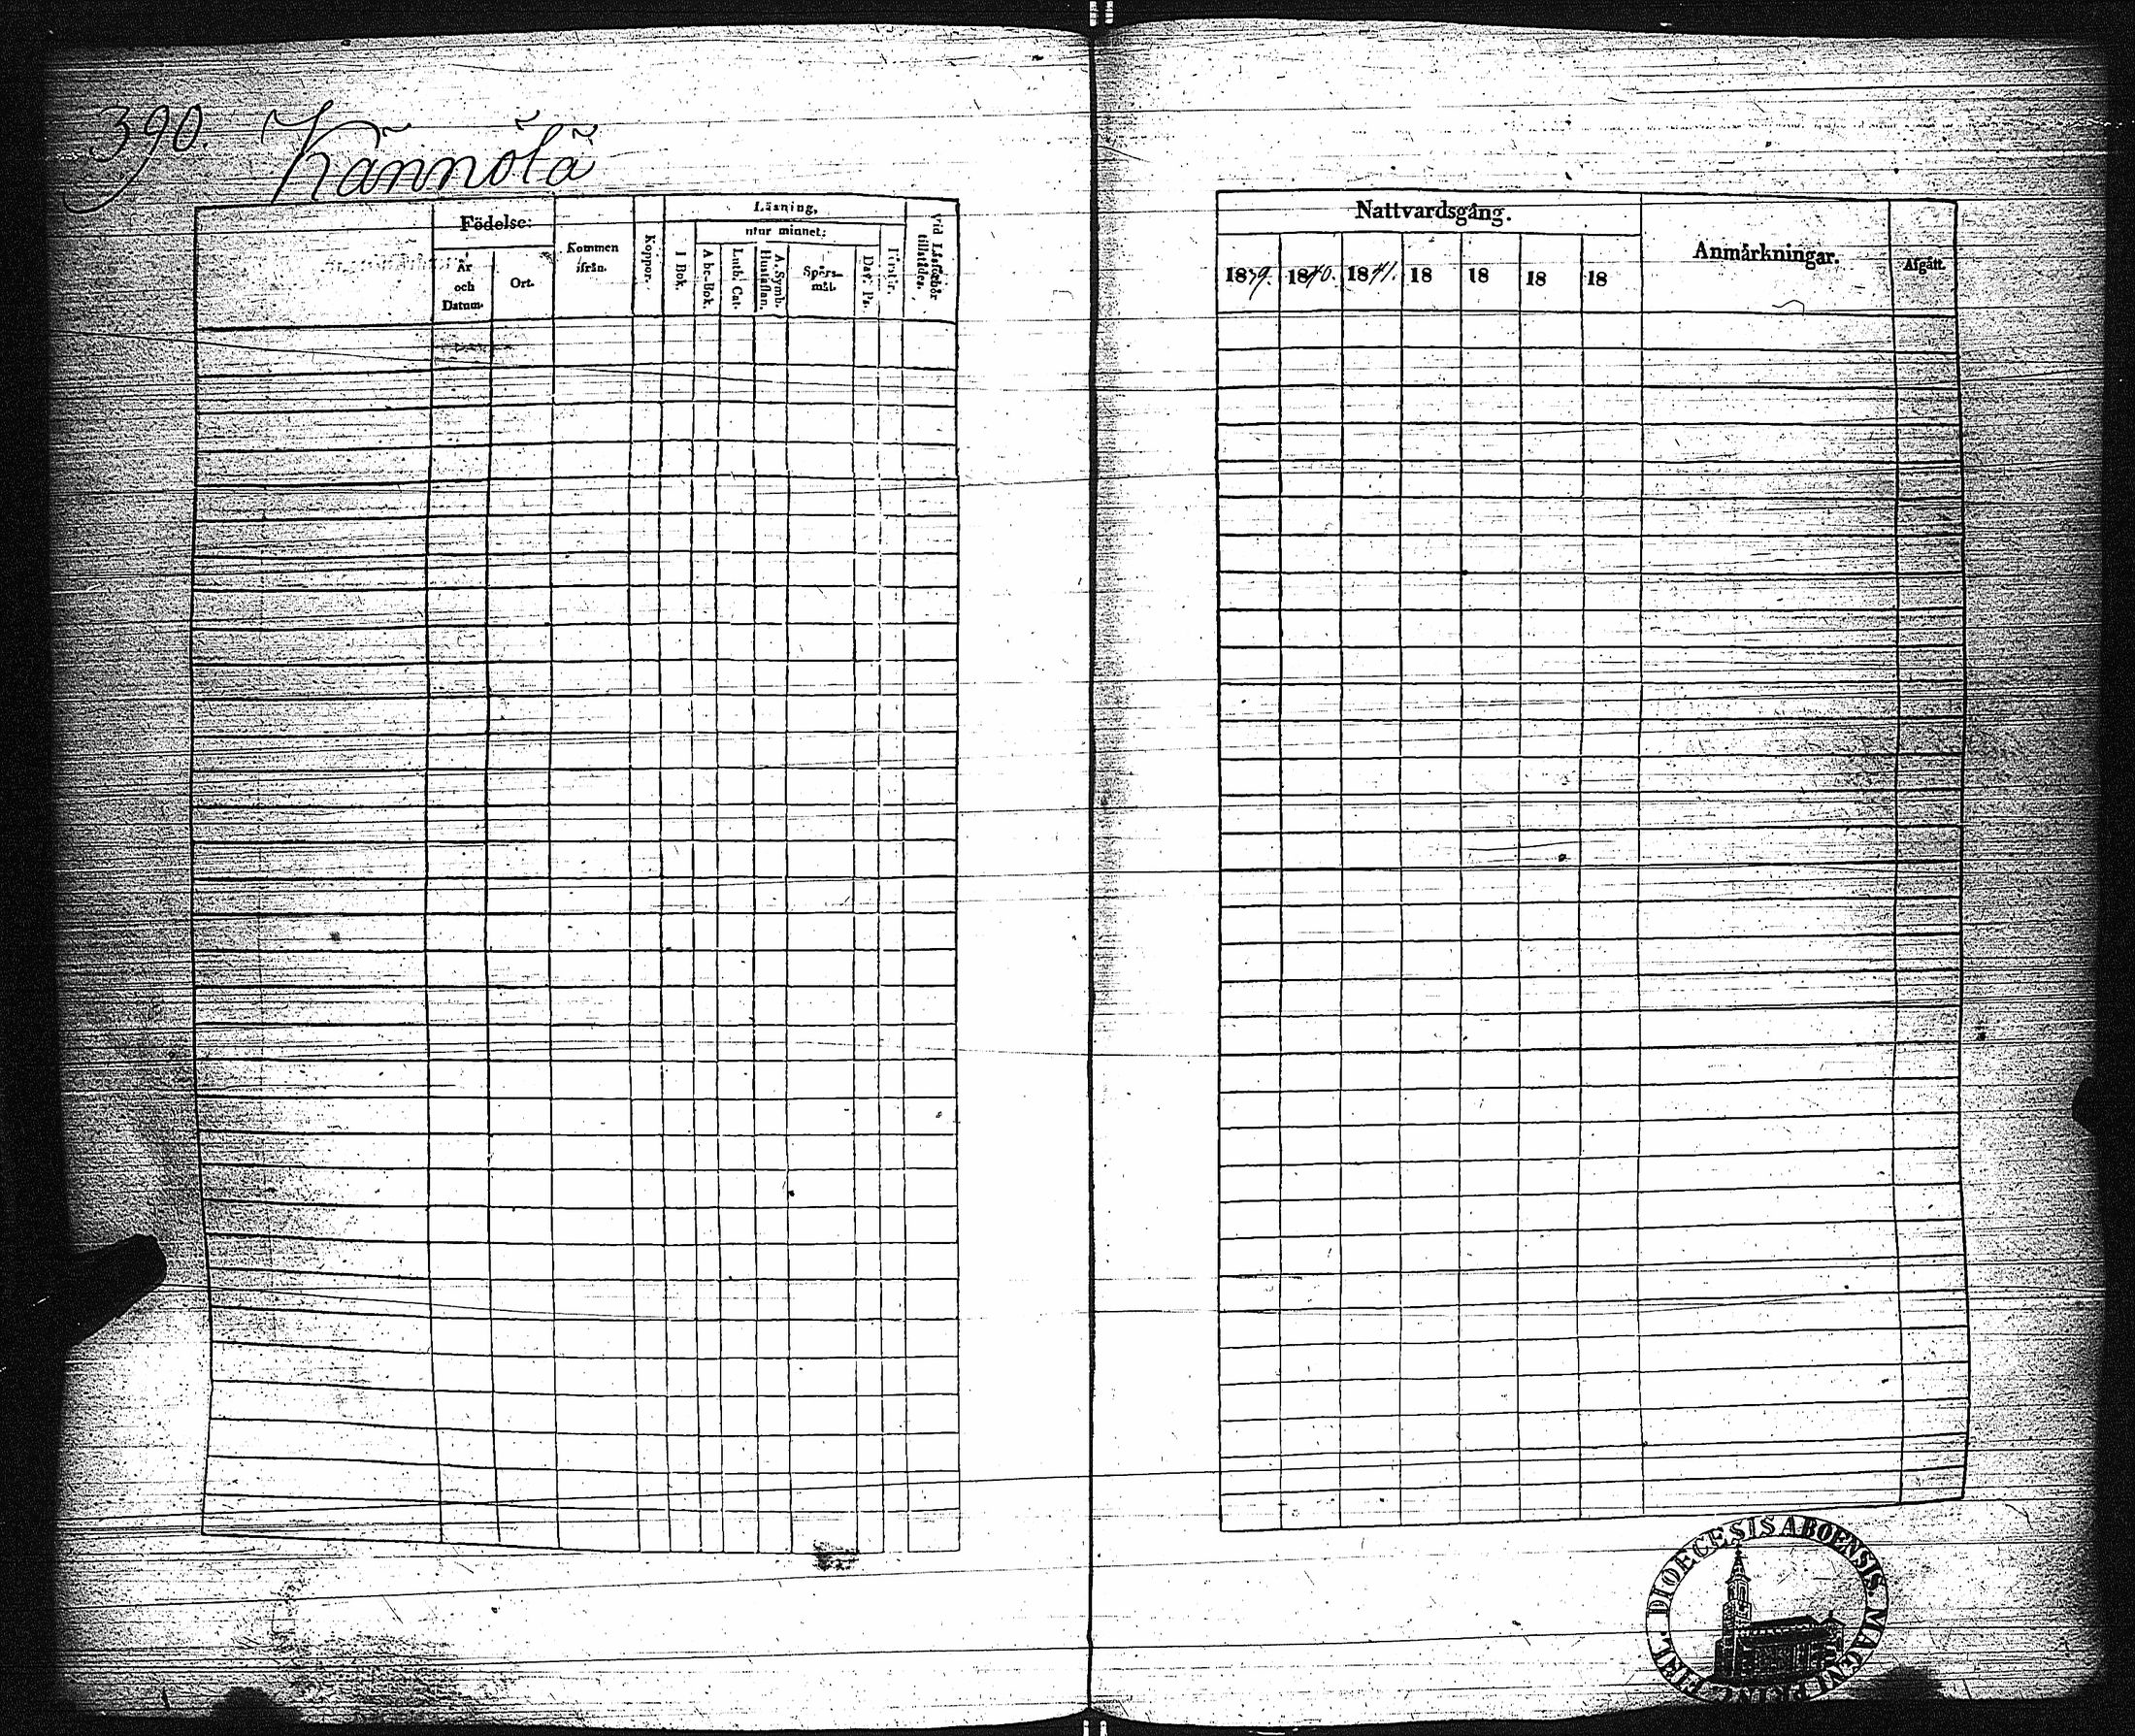 390. Kännölä
Födelse:
År och Datum.
Ort.
Kommen ifrån.
Koppor.
Läsning,
I Bok.
utur minnet:
A bc-Bok.
Luth. Cat.
A. Symb. Hustaflan.
Spörs-mål.
Dav. Ps.
Förstår.
vid Läsförhör tillstädes.
Nattvardsgång.
1839. 1840. 1841. 18 18 18 18
Anmärkningar.
Afgått.
DIOECESIS ABOENSIS MAGNI PRINC. FINL.